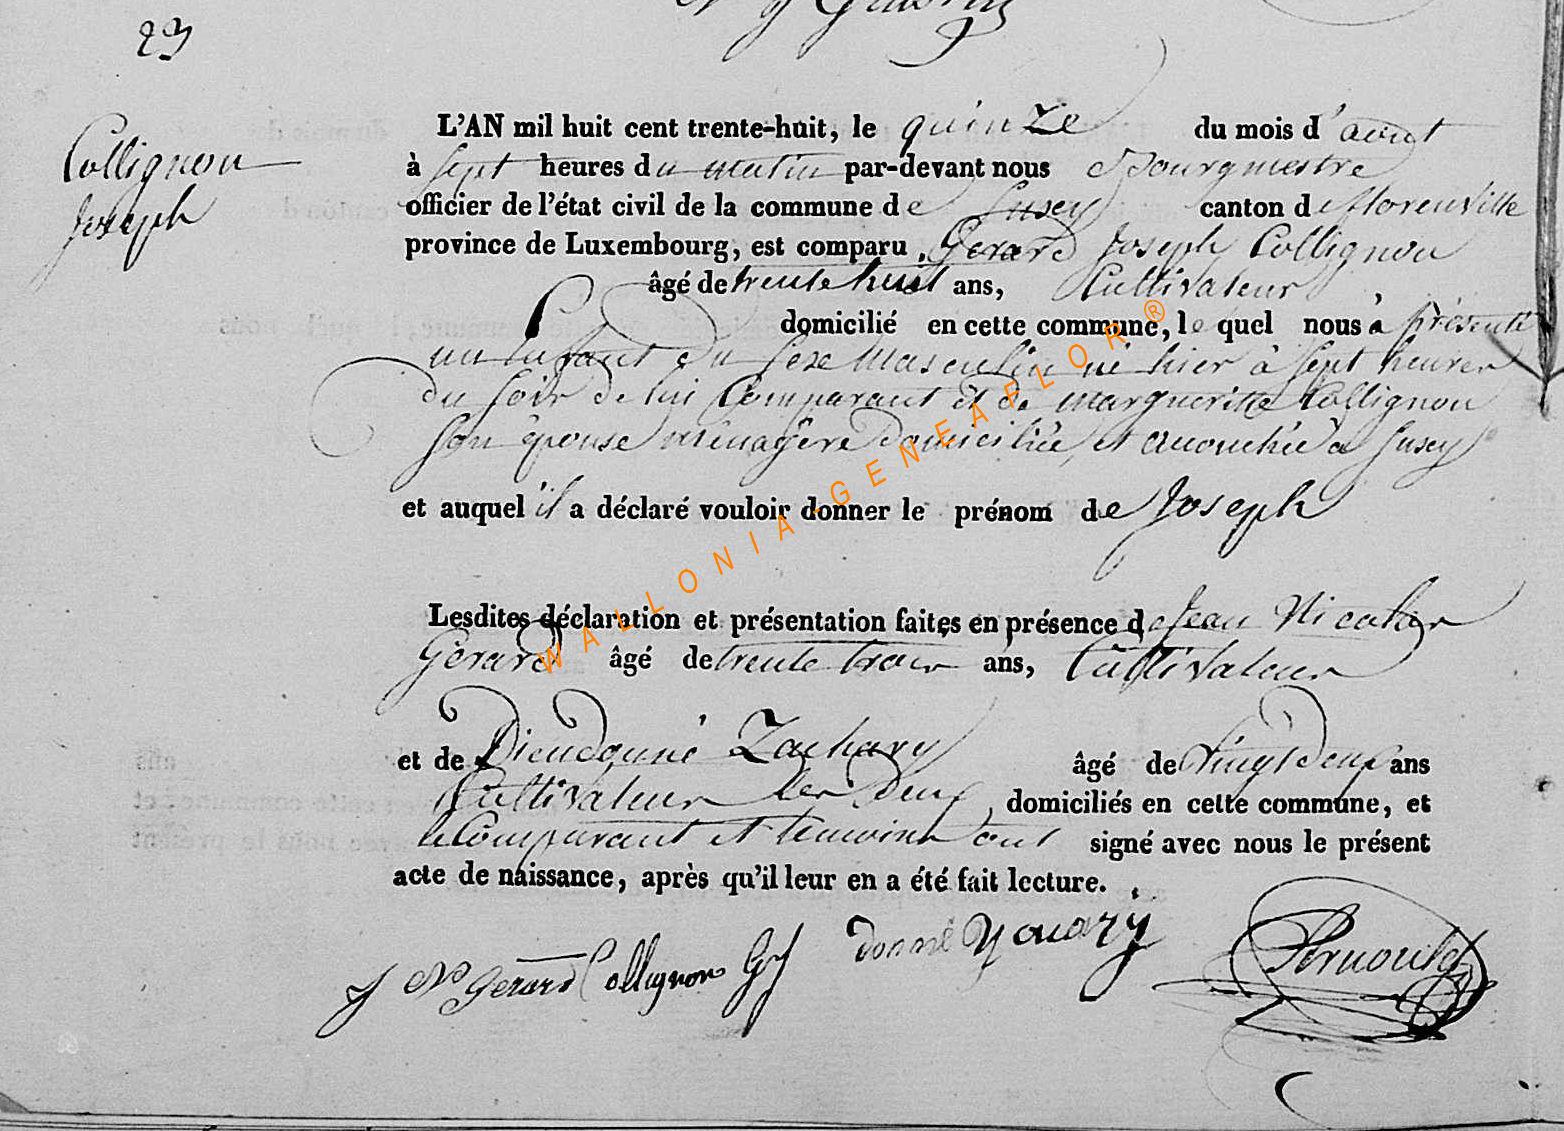 23
Collignon
Joseph
L'AN mil huit cent trente-huit, le quinze du mois d'aout
à sept heures du matin par-devant nous Bourgmestre
officier de l'état civil de la commune de Susey canton de florenville
province de Luxembourg, est comparu Gerard Joseph Collignon
âgé de trente huit ans, Cultivateur
domicilié en cette commune, le quel nous a présenté
un Enfant du sexe Masculin né hier à sept heures
du soir de lui Comparant et de margueritte Collignon
son épouse ménagère domiciliée, et accouchée à Susey
et auquel il a déclaré vouloir donner le prénom de Joseph
Lesdites déclaration et présentation faites en présence de Jean Nicolas
Gérard âgé de trente trois ans, Cultivateur
et de Dieudonné Zachary âgé de vingt deux ans
Cultivateur les deux domiciliés en cette commune, et
le Comparant et temoins ont signé avec nous le présent
acte de naissance, après qu'il leur en a été fait lecture.
J N Gerard Collignon GJ
WALLONIA-GENEAFLOR®